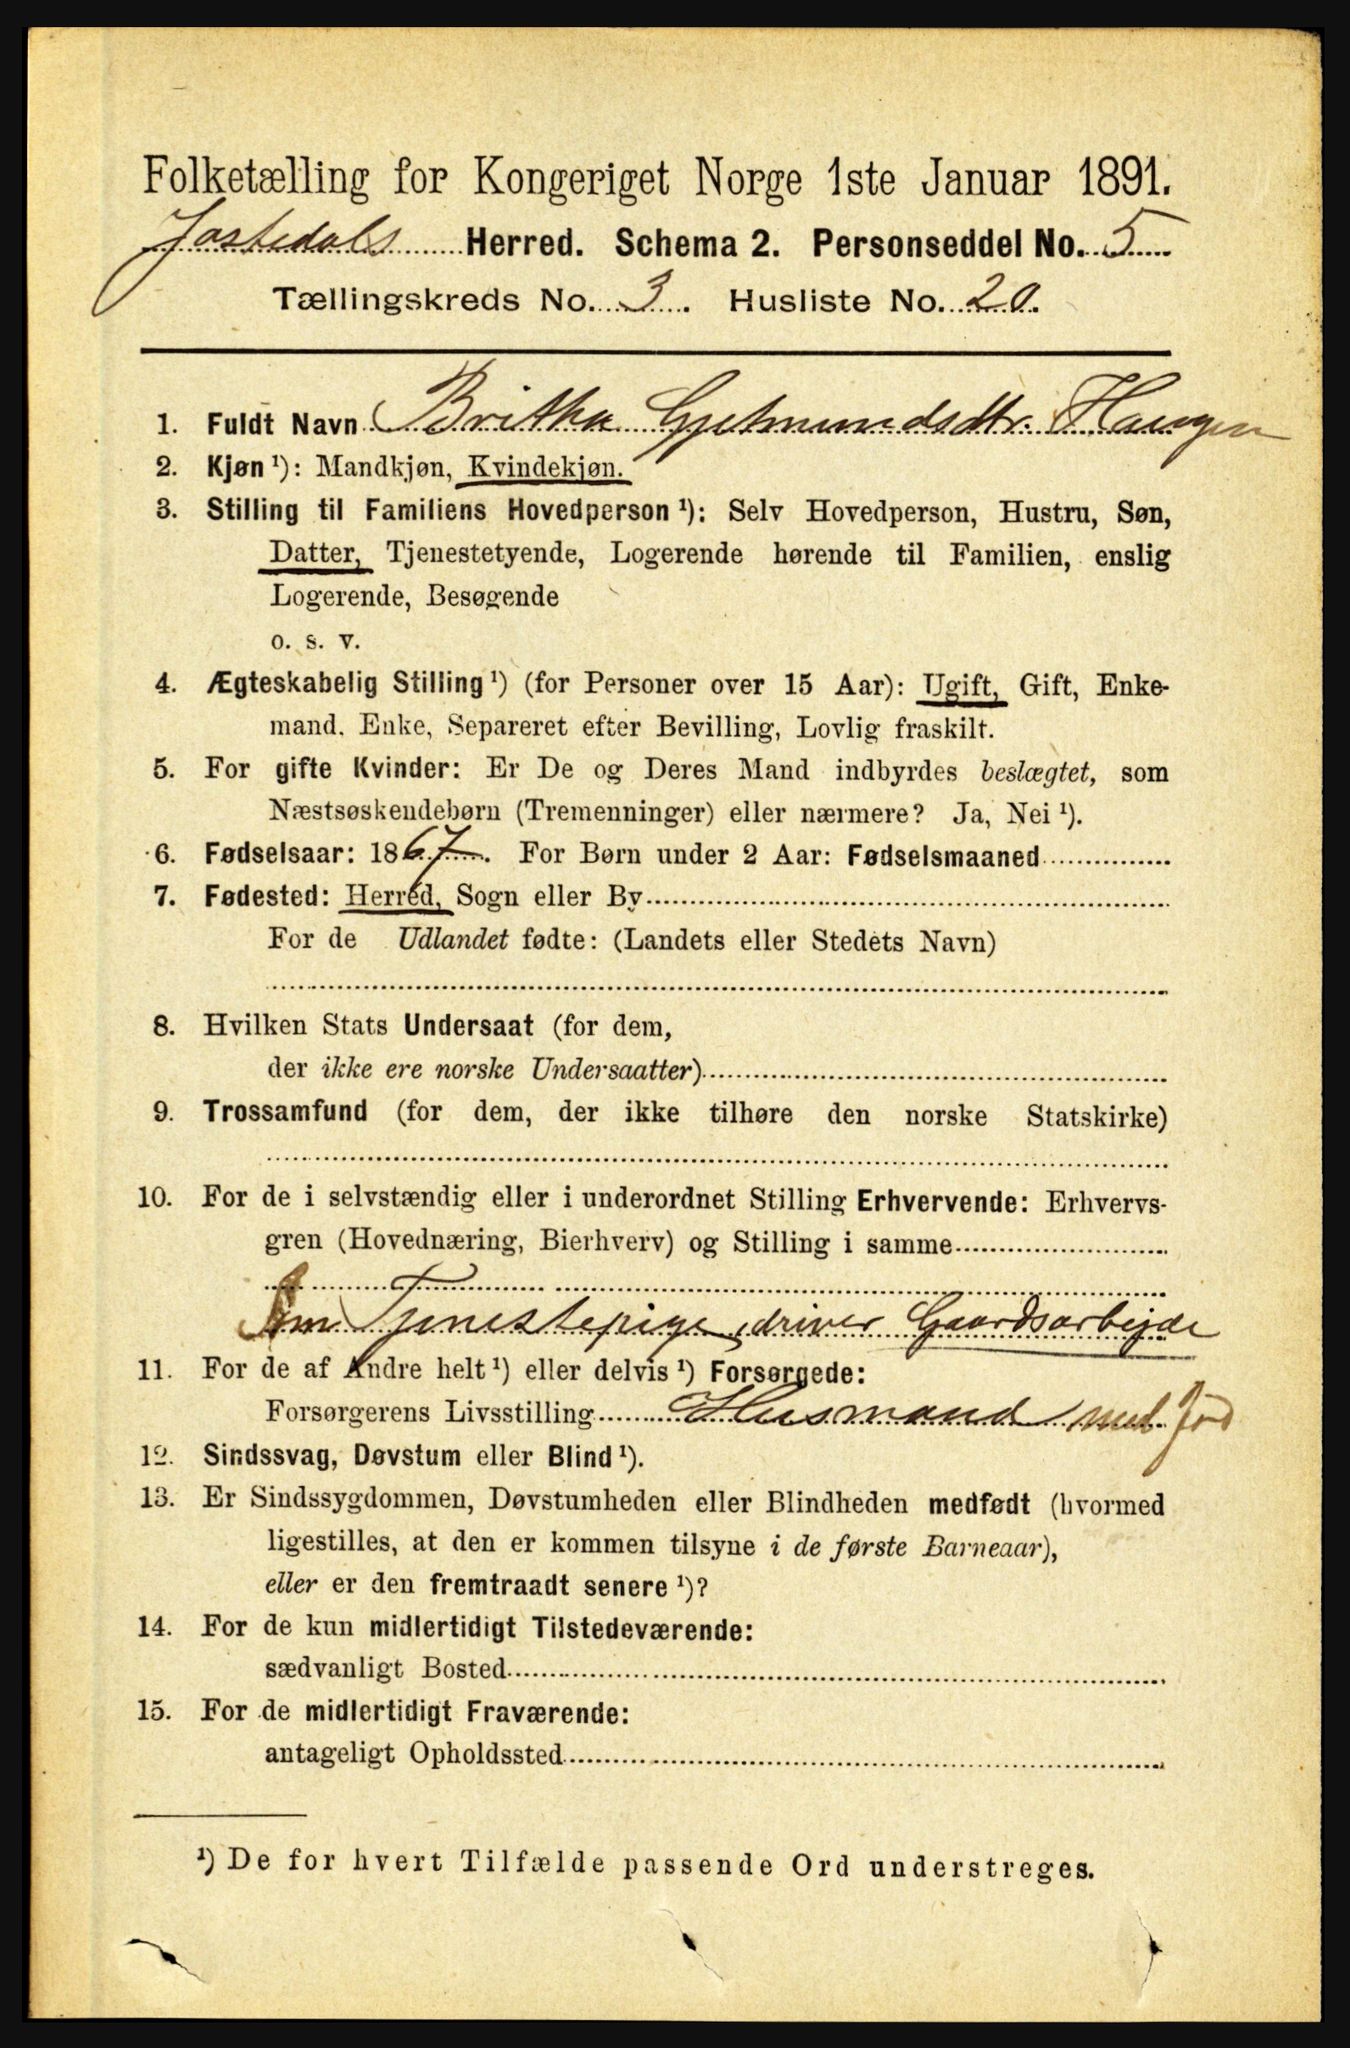 Folketælling for Kongeriget Norge 1ste Januar 1891.
Jostedals Herred. Schema 2. Personseddel No. 5
Tællingskreds No. 3. Husliste No. 20.
1. Fuldt Navn Britha Gjetmundsdtr. Haugen
2. Kjøn ¹): Mandkjøn, Kvindekjøn.
3. Stilling til Familiens Hovedperson ¹): Selv Hovedperson, Hustru, Søn,
Datter, Tjenestetyende, Logerende hørende til Familien, enslig
Logerende, Besøgende
o. s. v.
4. Ægteskabelig Stilling ¹) (for Personer over 15 Aar): Ugift, Gift, Enke-
mand, Enke, Separeret efter Bevilling, Lovlig fraskilt.
5. For gifte Kvinder: Er De og Deres Mand indbyrdes beslægtet, som
Næstsøskendebørn (Tremenninger) eller nærmere? Ja, Nei ¹).
6. Fødselsaar: 1867. For Børn under 2 Aar: Fødselsmaaned
7. Fødested: Herred, Sogn eller By
For de Udlandet fødte: (Landets eller Stedets Navn)
8. Hvilken Stats Undersaat (for dem,
der ikke ere norske Undersaatter)
9. Trossamfund (for dem, der ikke tilhøre den norske Statskirke)
10. For de i selvstændig eller i underordnet Stilling Erhvervende: Erhvervs-
gren (Hovednæring, Bierhverv) og Stilling i samme
Som Tjenestepige, driver Gaardsarbejde
11. For de af Andre helt ¹) eller delvis ¹) Forsørgede:
Forsørgerens Livsstilling Husmand med Jord
12. Sindssvag, Døvstum eller Blind ¹).
13. Er Sindssygdommen, Døvstumheden eller Blindheden medfødt (hvormed
ligestilles, at den er kommen tilsyne i de første Barneaar),
eller er den fremtraadt senere ¹)?
14. For de kun midlertidigt Tilstedeværende:
sædvanligt Bosted
15. For de midlertidigt Fraværende:
antageligt Opholdssted
¹) De for hvert Tilfælde passende Ord understreges.